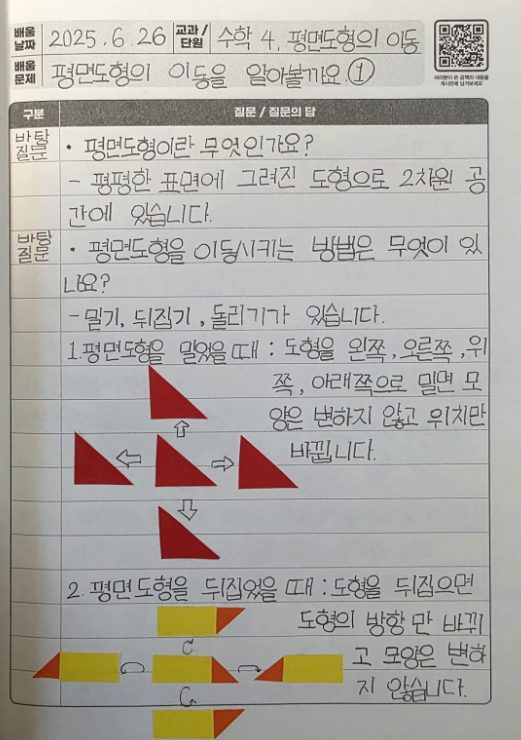 배움 날짜 2025. 6. 26 교과/단원 수학 4. 평면도형의 이동
배움 문제 평면도형의 이동을 알아볼까요 ①
구분 질문 / 질문의 답
바탕 질문 • 평면도형이란 무엇인가요?
- 평평한 표면에 그려진 도형으로 2차원 공
간에 있습니다.
바탕 질문 • 평면도형을 이동시키는 방법은 무엇이 있
나요?
- 밀기, 뒤집기, 돌리기가 있습니다.
1.평면도형을 밀었을 때 : 도형을 왼쪽, 오른쪽, 위
쪽, 아래쪽으로 밀면 모
양은 변하지 않고 위치만
바뀝니다.
2. 평면도형을 뒤집었을 때 : 도형을 뒤집으면
도형의 방향만 바뀌
고 모양은 변하
지 않습니다.